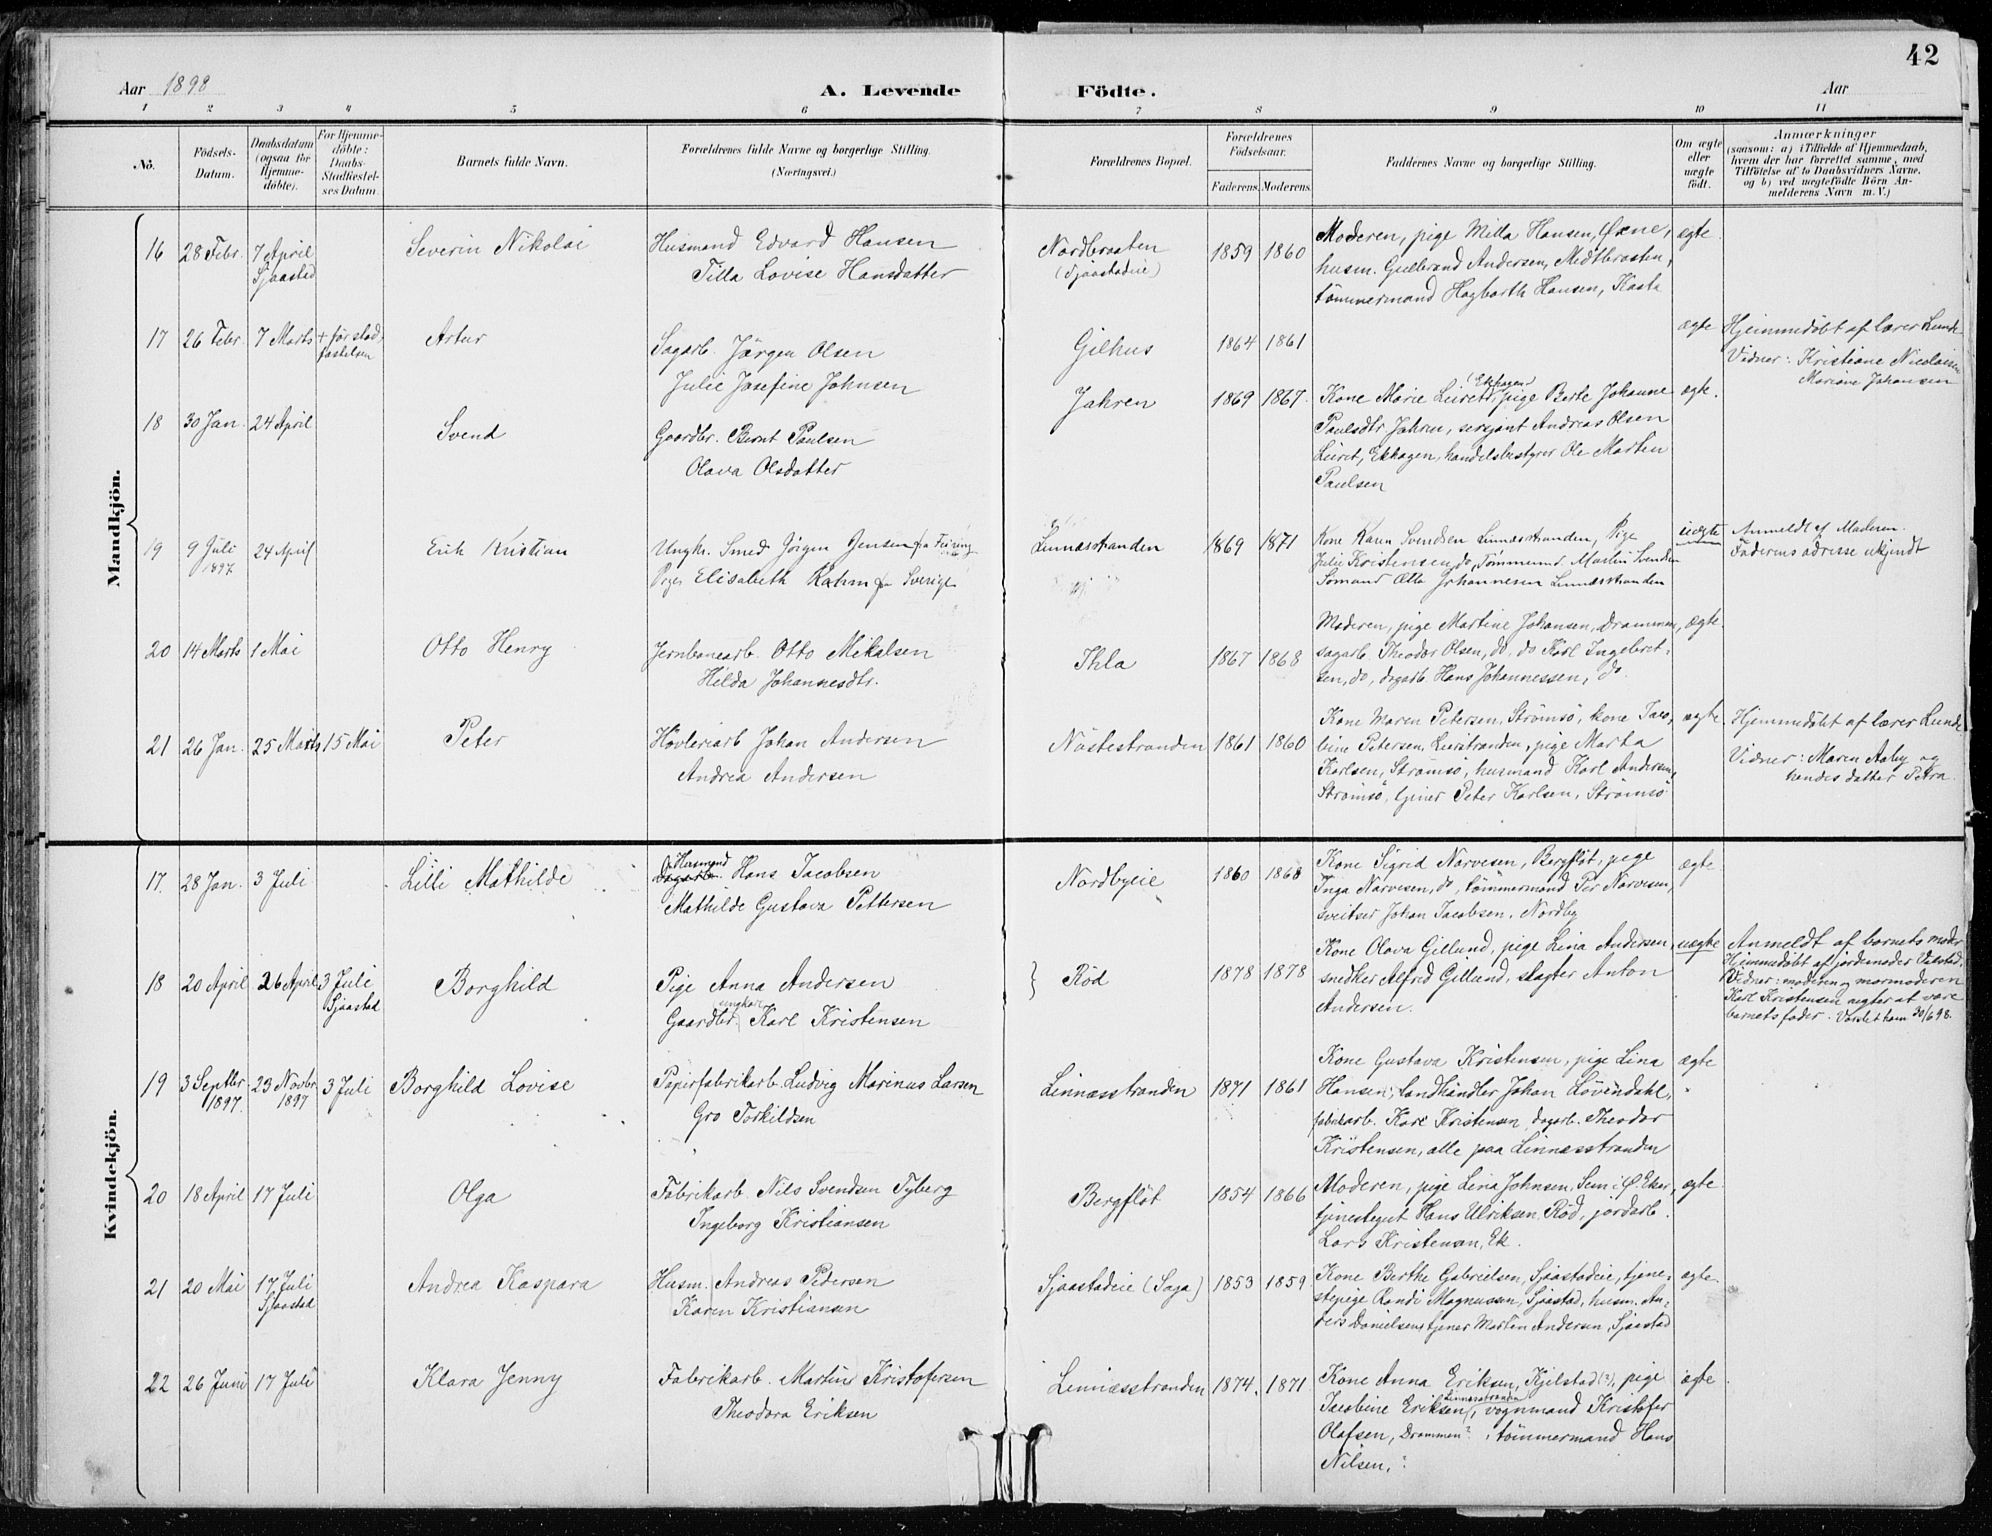 42
Aar 1898
A. Levende Födte.
Aar
1 2 3 4 5 6 7 8 9 10 11
No.
Födsels-Datum.
Daabsdatum (ogsaa for Hjemme-döbte).
For Hjemme-döbte: Daabs-Stadfæstel-ses Datum.
Barnets fulde Navn.
Forældrenes fulde Navne og borgerlige Stilling. (Næringsvei.)
Forældrenes Bopæl.
Forældrenes Födselsaar.
Faderens. Moderens.
Faddernes Navne og borgerlige Stilling.
Om ægte eller uægte födt.
Anmærkninger
(saasom: a) i Tilfælde af Hjemmedaab, hvem der har forrettet samme, med Tilföielse af to Daabsvidners Navne, og b) ved uægtefödte Börn An-melderens Navn m. V.)
Mandkjön.
16 28 Febr. 7 April Sjaastad
Severin Nikolai
Husmand Edvard Hansen
Tilla Lovise Hansdatter
Nordbraaten
(Sjaastadeie)
1859 1860
Moderen, pige Milla Hansen, Öxne,
husm. Gulbrand Andersen, Midtbraaten,
tömmermand Hagbarth Hansen, Kasta
ægte.
17 26 Febr. 7 Marts + för stad-fæstelsen
Artur
Sagarb. Jörgen Olsen
Julie Josefine Johnsen
Gilhus
1864 1861
ægte
Hjemmedöbt af lærer Lunde
Vidner: Kristiane Nicolaisen
Mariane Johansen
18 30 Jan. 24 April
Svend
Gaardbr. Bernt Paulsen
Olava Olsdatter
Jahren
1869 1867.
Kone Marie Leiret (Ekhagen), pige Berte Johanne
Paulsdtr Jahren, sersjant Andreas Olsen
Leiret, Ekhagen, handelsbestyrer Ole Marten
Paulsen
ægte.
19 9 Juli 1897 24 April
Erik Kristian
Ungkr. Smed Jörgen Jensen fra Feiring
Pige Elisabeth Rahm fra Sverige
Linnæsstranden
1869 1871
Kone Karen Svendsen Linnæsstranden, Pige
Julie Kristensen, do, Tömmermd Martin Svendsen
Sömand Otto Johannesen Linnæsstranden
uægte
Anmeldt af Moderen.
Faderens adresse ukjendt
20 14 Marts 1 Mai
Otto Henry
Jernbanearb. Otto Mikalsen
Hilda Johannesdtr.
Ihla
1867 1868
Moderen, pige Martine Johansen, Drammen,
sagarb. Theodor Olsen, do, do Karl Ingebret-
sen, do, dagarb. Hans Johannessen, do.
ægte.
21 26 Jan. 25 Marts 15 Mai
Peter
Hövleriarb Johan Andersen
Andrea Andersen
Nöstestranden
1861 1860
Kone Maren Petersen, Strömsö, kone Jaco-
bine Petersen, Lierstranden, pige Marta
Karlsen, Strömsö, husmand Karl Andersen,
Strömsö, tjener Peter Karlsen, Strömsö
ægte.
Hjemmedöbt af lærer Lunde
Vidner: Maren Aaby og
hendes datter Petra.
Kvindekjön.
17. 28 Jan. 3 Juli
Lilli Mathilde
Husmand
Dagarb. Hans Jacobsen
Mathilde Gustava Pettersen
Nordbyeie
1860 1868
Kone Sigrid Narvesen, Bergflöt, pige
Inga Narvesen, do, tömmermand Per Narvesen,
sveitser Johan Jacobsen, Nordby
ægte
18 20 April 26 April 3 Juli Sjaastad
Borghild
Pige Anna Andersen
Gaardbr. ungkar Karl Kristensen
Röd
1878 1878
Kone Olava Gillund, pige Lina Andersen,
snedker Alfred Gillund, slagter Anton
Andersen.
uægte
Anmeldt af barnets moder
Hjemmedöbt af jordemoder Valstad,
Vidner: moderen og mormoderen
Karl Kristensen negter at være
barnets fader. Varslet ham 30/6 98.
19 3 Septbr 1897. 23 Novbr. 1897 3 Juli
Borghild Lovise
Papirfabrikarb. Ludvig Marinus Larsen
Gro Torkildsen
Linnæsstranden
1871 1861
Kone Gustava Kristensen, pige Lina
Hansen, landhandler Johan Lövendahl,
fabrikarb. Karl Kristensen, dagarb. Theodor
Kristensen, alle paa Linnæsstranden
ægte
20 18 April 17 Juli
Olga
Fabrikarb. Nils Svendsen Tyberg
Ingeborg Kristiansen
Bergflöt
1854 1866
Moderen, pige Lina Johnsen, Sem i Ö Eker,
tjenestegut Hans Ulriksen, Röd, jordarb.
Lars Kristensen, Ek.
ægte.
21 20 Mai 17 Juli Sjaastad
Andrea Kaspara
Husm. Andreas Pedersen
Karen Kristiansen
Sjaastadeie (Saga)
1853 1859
Kone Berthe Gabrielsen, Sjaastadeie, tjene-
stepige Randi Magnussen, Sjaastad, husm. An-
ders Danielsen, tjener Marten Andersen, Sjaastad
ægte.
22 26 Juni 17 Juli
Klara Jenny
Fabrikarb. Martin Kristofersen
Theodora Eriksen
Linnæsstranden
1874. 1871
Kone Anna Eriksen, Kjelstad (?), pige
Jacobine Eriksen, Linnæsstranden, vognmand Kristofer
Olafsen, Drammen?, tömmermand Hans
Nilsen, ?
ægte